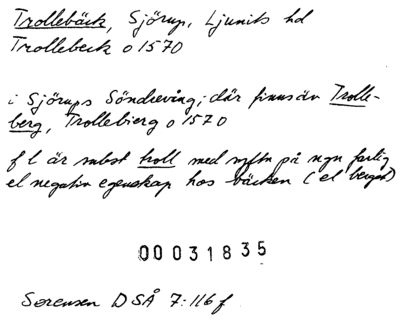 Trollebäck, Sjörup, Ljunits hd
Trollebeck o 1570
i Sjörups Söndreving; där finns äv Trolle-
berg, Trollebierg o 1570
f l är subst troll med syftn på ngn farlig
el negativ egenskap hos bäcken (el berget)
00031835
Sørensen DSÅ 7:116 f